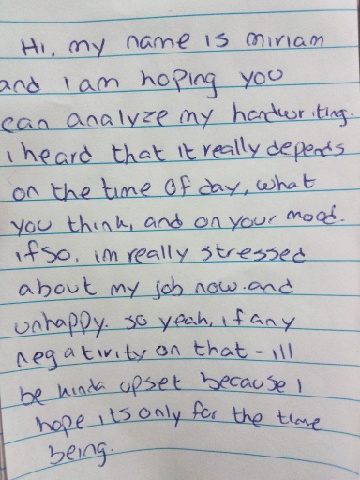 Hi, my name is miriam
and i am hoping you
can analyze my handwriting.
i heard that it really depends
on the time of day, what
you think, and on your mood.
if so, im really stressed
about my job now. and
unhappy. so yeah, if any
negativity on that - ill
be kinda upset because i
hope its only for the time
being.